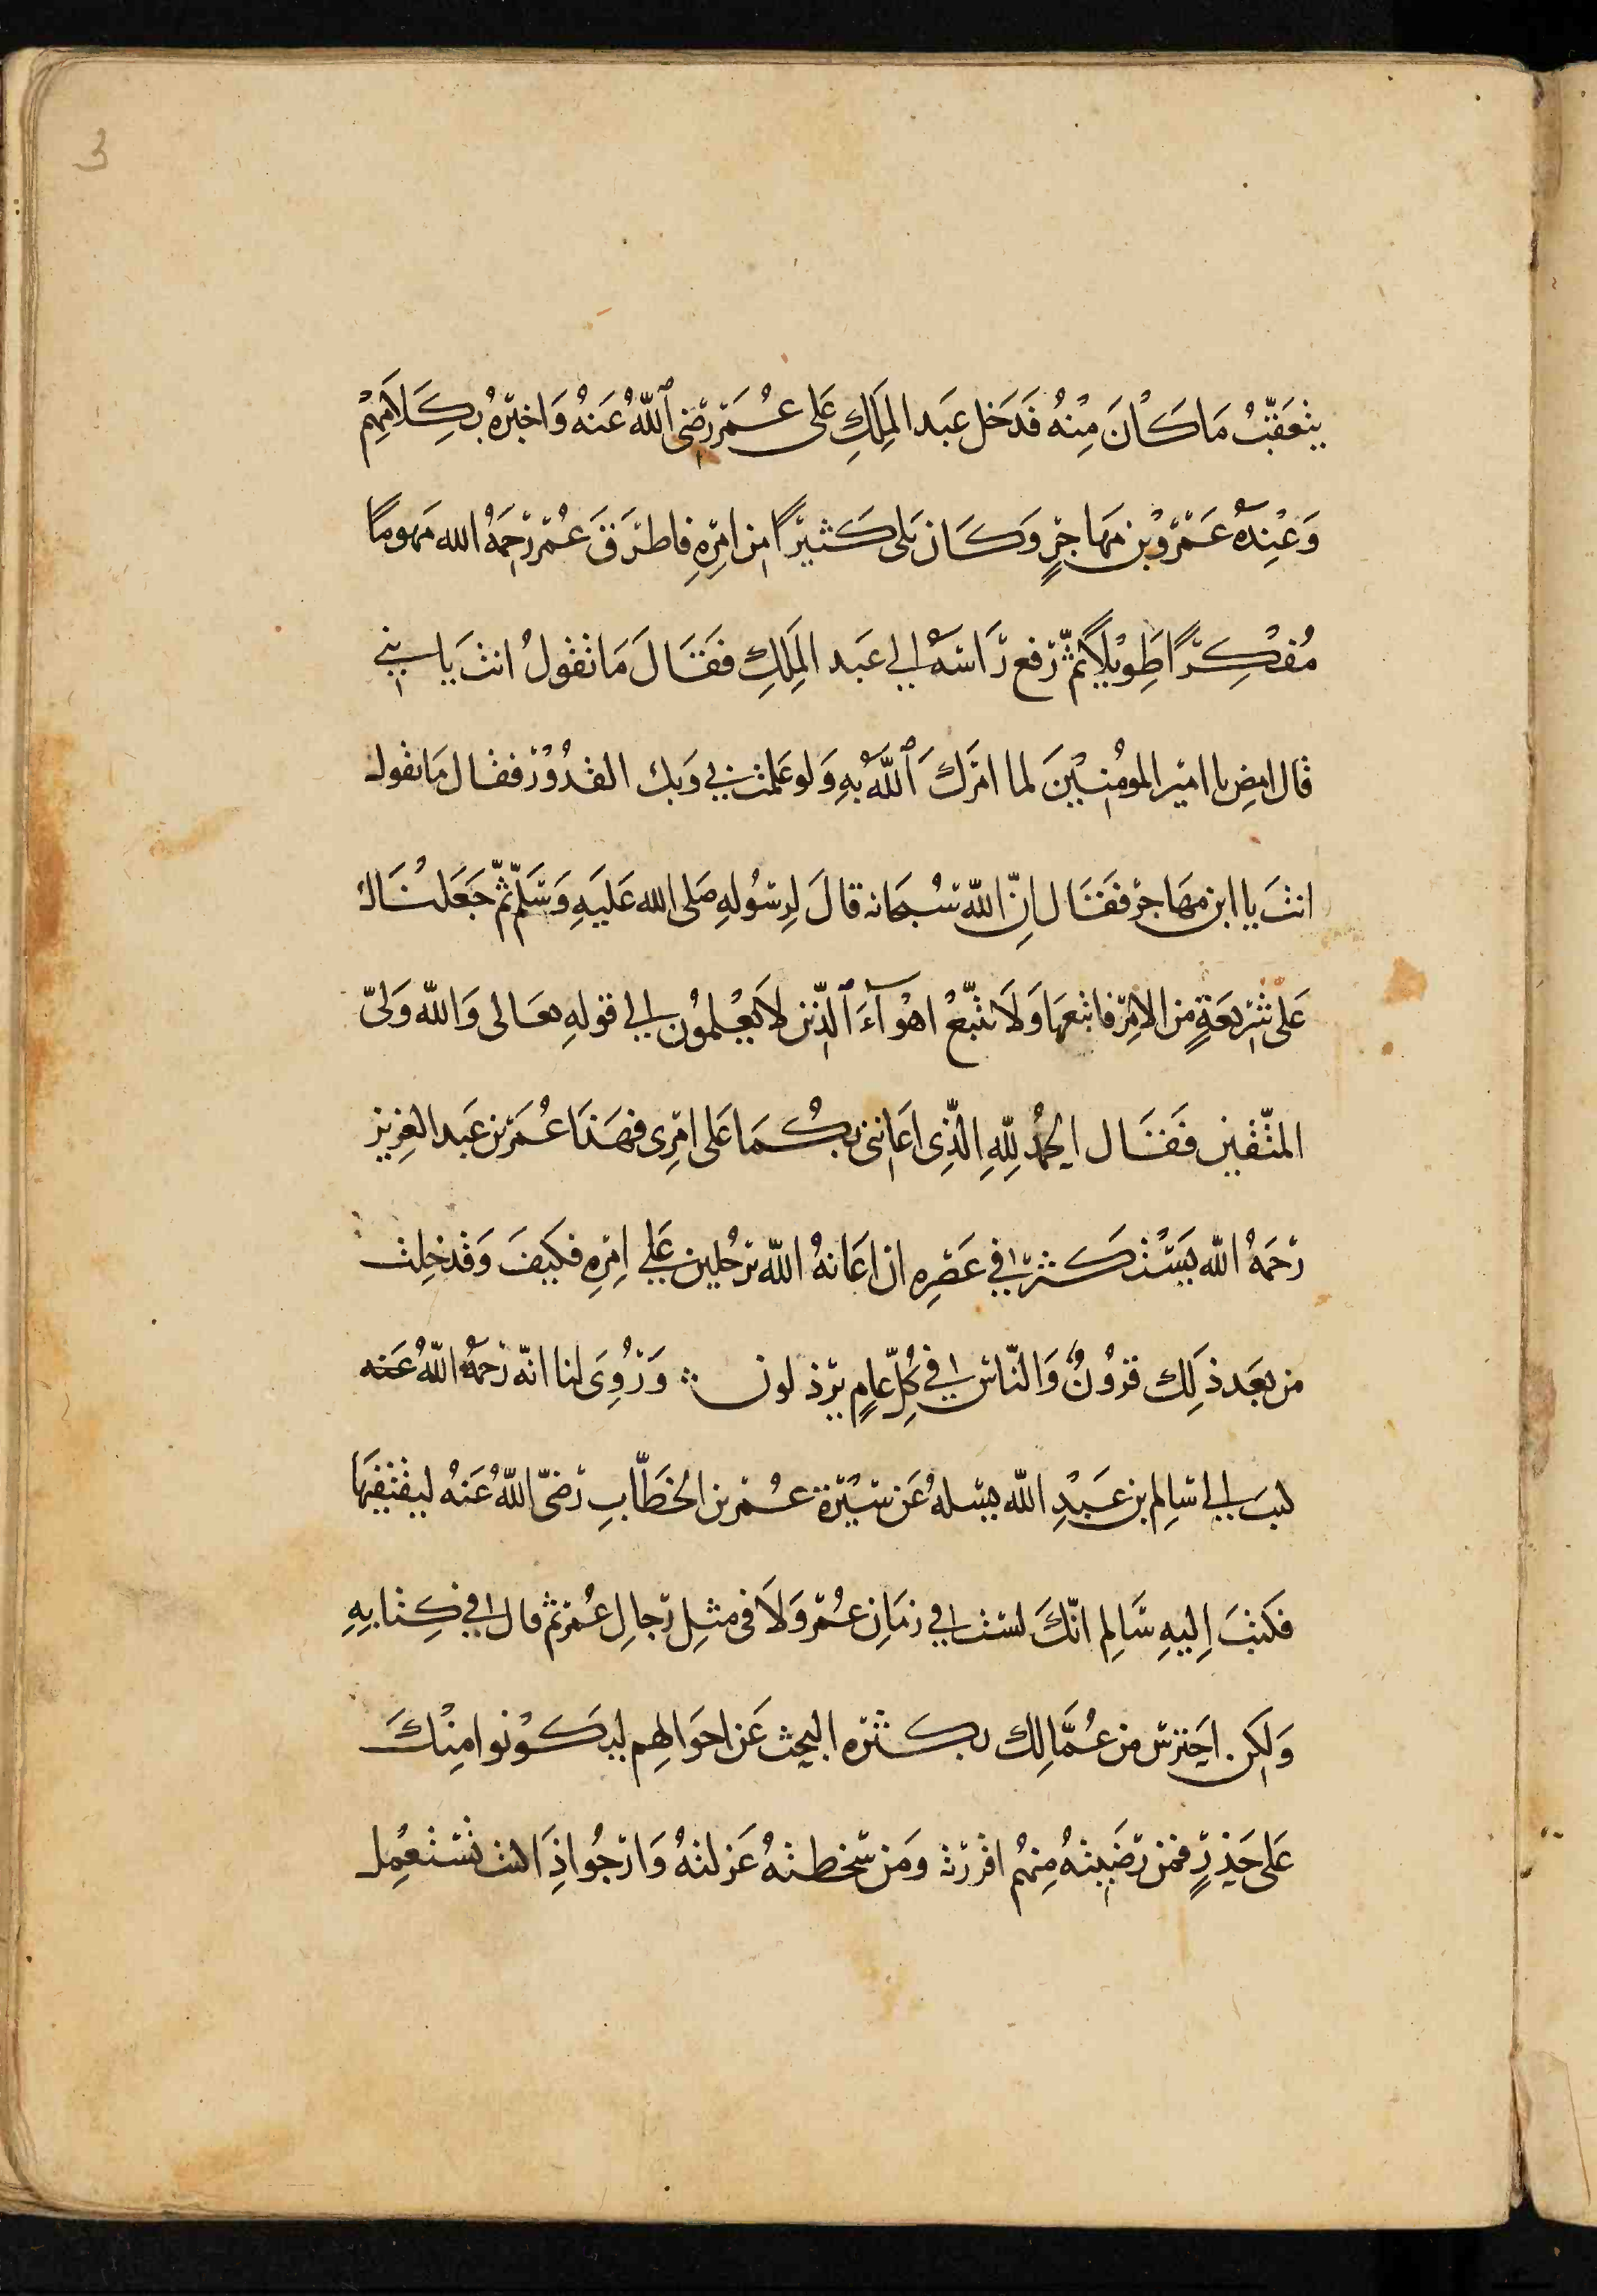 3
يتعقّبُ مَا كَانَ مِنْهُ فَدَخل عَبد الملِكِ عَلى عُمَر رضى اللهُ عَنهُ وَاخبَرهُ بكَلَامِهِمْ
وَعِنْدهُ عَمرو بن مهَاجرٍ وَكَان يَلى كَثيرًا من امرِهِ فاطرَقَ عُمر رَحِمَهُ الله مَهمومًا
مُفكِرًا طَوِيلًا ثمّ رَفع رَاسَهُ الى عَبد الملِكِ فَقَالَ مَا تقولُ انتَ يا بنى
قال امضِ يا امير المومُنينَ لما امرَكَ اَللهُ بهِ وَلو غلت بى وَبك القدُوْر فقال مَا تقول
انتَ يا ابن مهَاجر فَقَال اِنّ الله سُبحَانه قالَ لِرسُولِهِ صَلى الله عَليَهِ وَسَلّم ثمّ جَعَلنَاك
عَلى شرِيعَةٍ من الامرِ فاتبعهَا وَلَا تتّبعْ اهْوآءَ اَلّذين لَا يعْلمُون الى قولهِ تعَالى وَالله وَلىّ
المتّقين فَقَال الحمدُ لِلّهِ الّذِى اعَاننى بكُمَا عَلى امرِى فهَذا عُمَر بن عَبد العزِيز
رَحمَهُ الله يَستْكثر فى عَصرِه ان اعَانهُ الله برجُلين عَلى امرِهِ فكيفَ وَقد خلت
من بعَد ذلِك قرُونٌ وَالنّاس فى كُلّ عامٍ يرذلون ؞ وَرُوِىَ لنا انّه رَحمهُ اللهُ عَنه
كتبَ الى سَالِم بن عَبدِ الله يسَلهُ عَن سيْرة عُمر بن الخَطّابِ رَضىّ اللهُ عَنهُ ليقتفيهَا
فكتبَ اِليهِ سَالِم انّكَ لستَ فى زمَان عُمر وَلَا فى مثلِ رِجالِ عُمر ثم قال فى كِتابهِ
وَلكن احترِس من عُمّالِك بكثرة البحث عَن احوَالهِم ليَكوْنوا منْكَ
عَلى حَذرٍ فمن رضَيتهُ مِنهُم اقررته وَمَن سَخطتهُ عَزلتهُ وَارجُوا اذِا انت تستعمِل